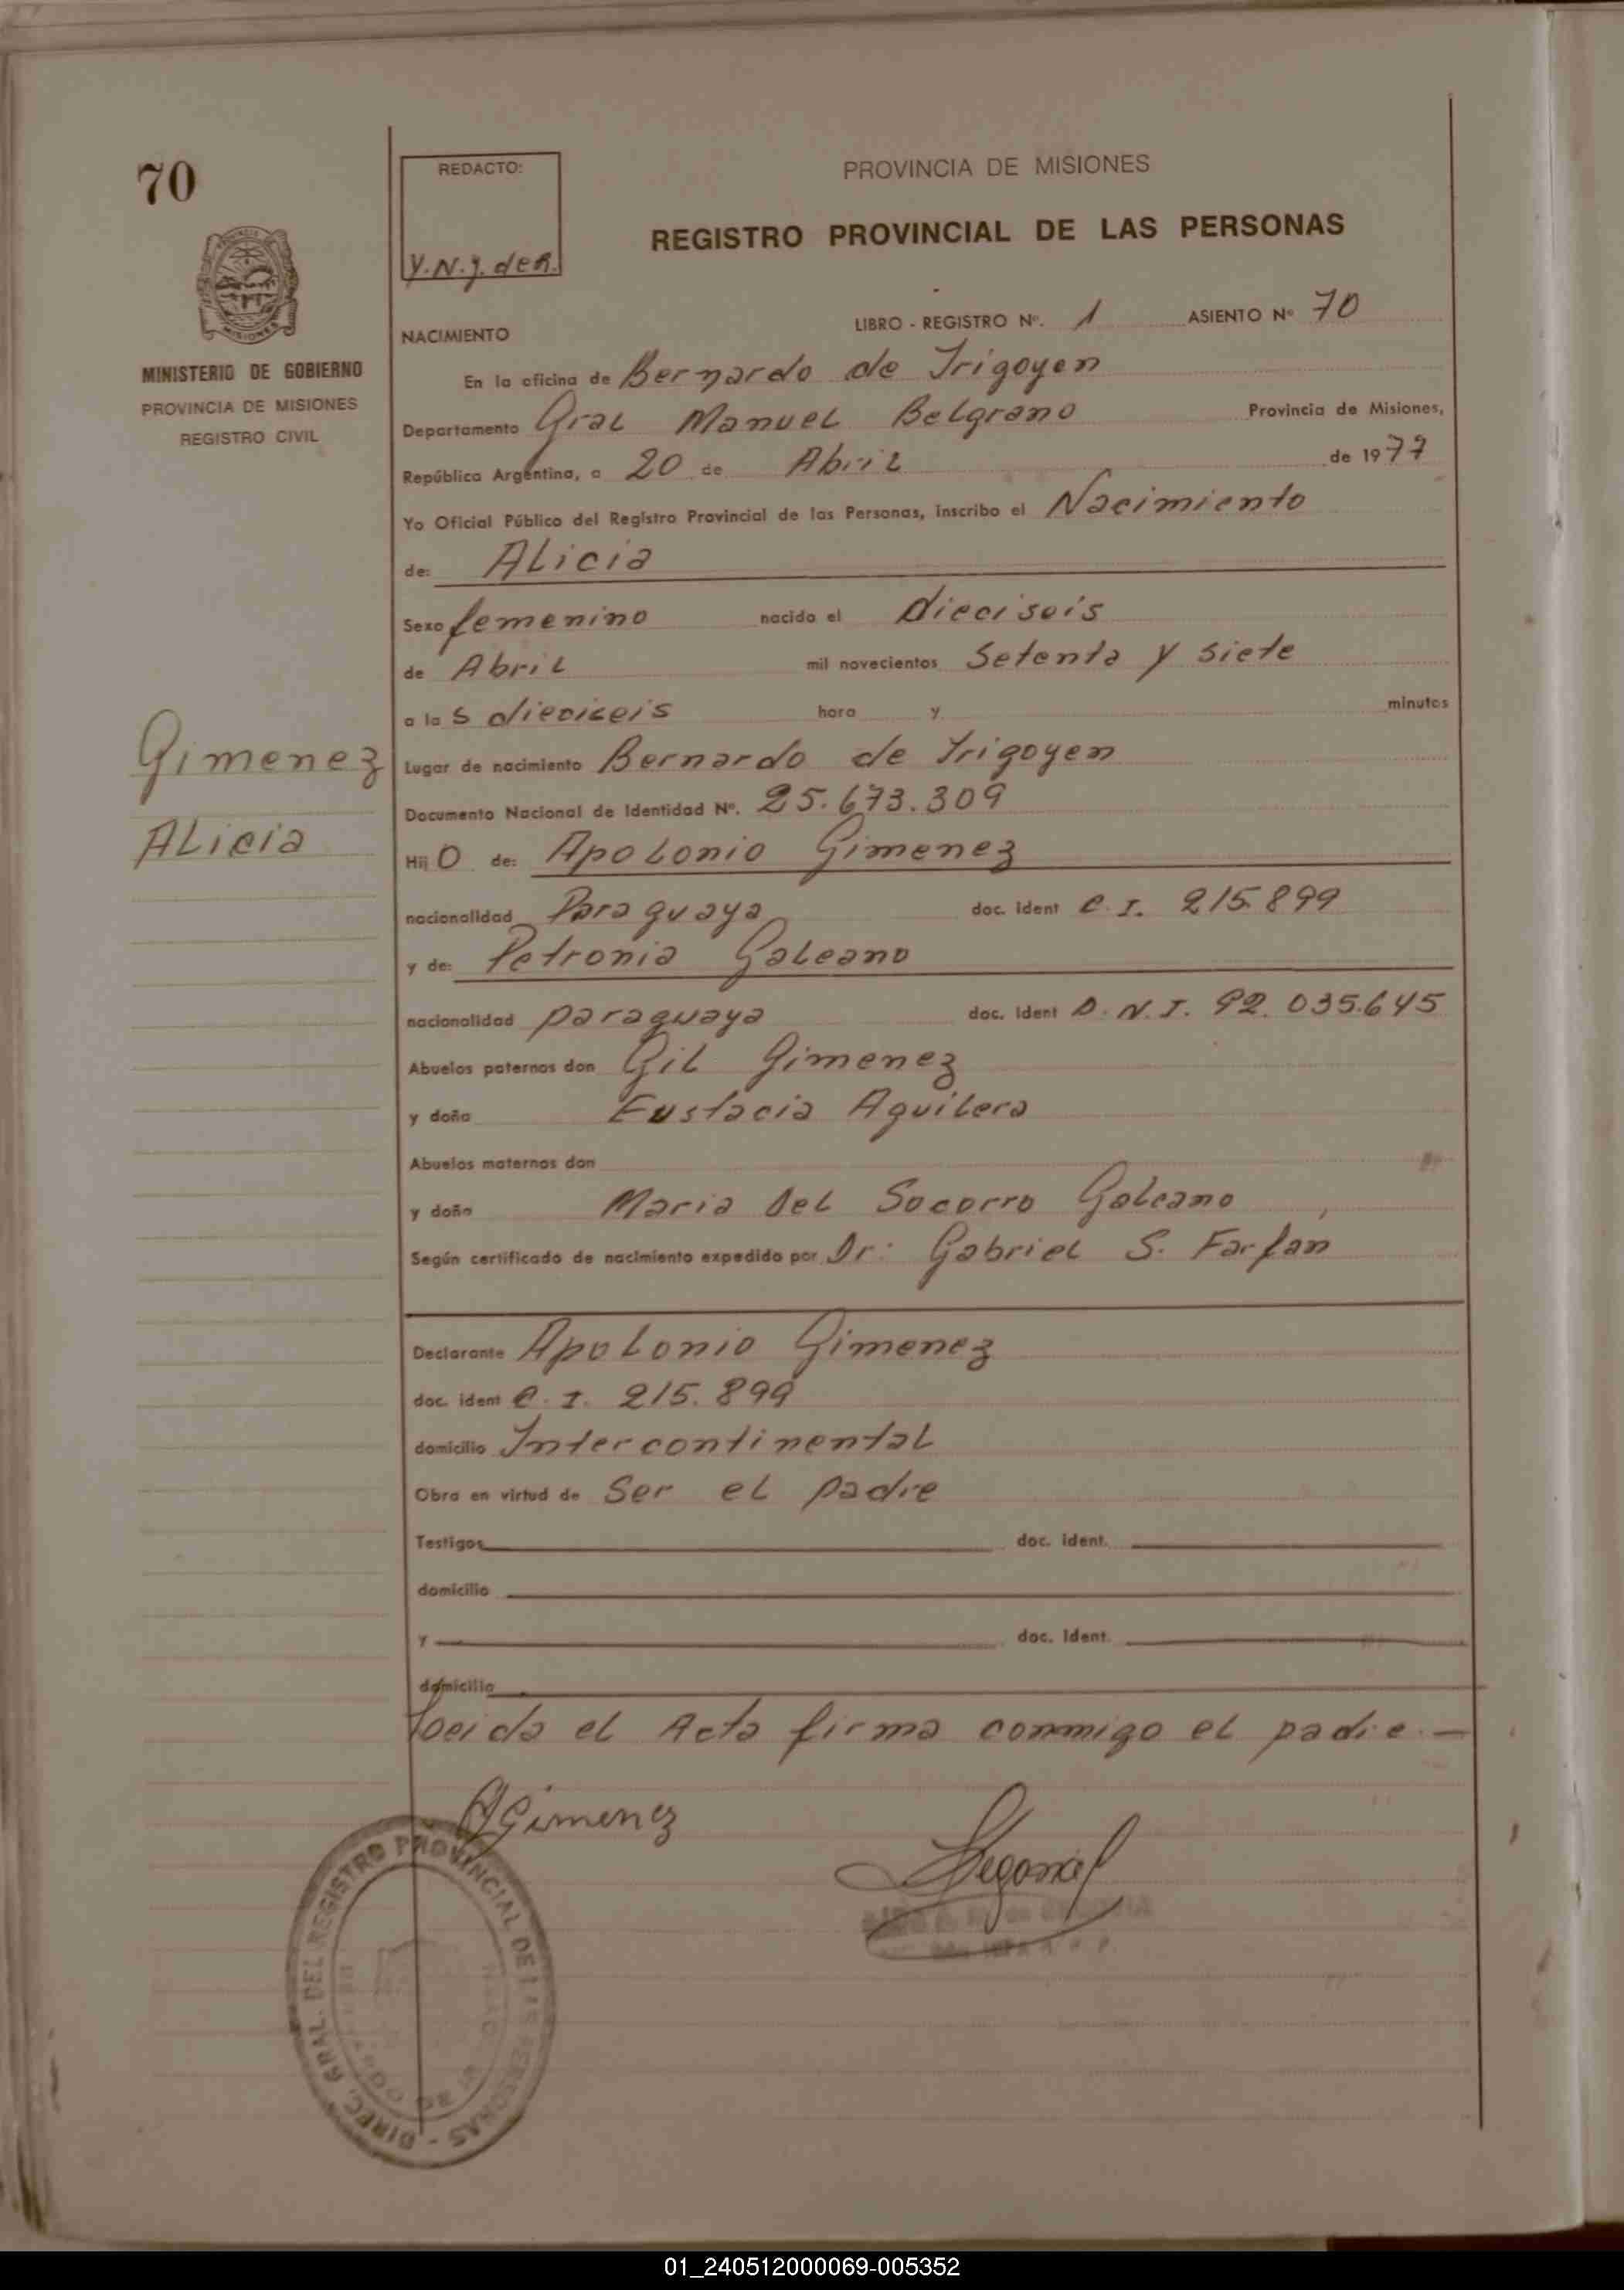 70
REDACTO:
Y.N.y. deR.
PROVINCIA DE MISIONES
REGISTRO PROVINCIAL DE LAS PERSONAS
MINISTERIO DE GOBIERNO
PROVINCIA DE MISIONES
REGISTRO CIVIL
Gimenez
Alicia
NACIMIENTO LIBRO - REGISTRO Nº. 1 ASIENTO Nº 70
En la oficina de Bernardo de Irigoyen
Departamento Gral Manuel Belgrano Provincia de Misiones,
República Argentina, a 20 de Abril de 1977
Yo Oficial Público del Registro Provincial de las Personas, inscribo el Nacimiento
de: Alicia
Sexo femenino nacido el dieciseis
de Abril mil novecientos Setenta y siete
a las dieciseis hora y minutos
Lugar de nacimiento Bernardo de Irigoyen
Documento Nacional de Identidad Nº. 25.673.309
Hijo de: Apolonio Gimenez
nacionalidad Paraguaya doc. ident C.I. 215.899
y de: Petronia Galeano
nacionalidad paraguaya doc. ident D.N.I. 92.035.645
Abuelos paternos don Gil Gimenez
y doña Eustacia Aguilera
Abuelos maternos don
y doña Maria Del Socorro Galeano
Según certificado de nacimiento expedido por Dr: Gabriel S. Farfan
Declarante Apolonio Gimenez
doc. ident C.I. 215.899
domicilio Intercontinental
Obra en virtud de Ser el padre
Testigos doc. ident.
domicilio
y doc. ident.
domicilio
Leida el Acta firma conmigo el padre.—
AGimenez
DIREC. GRAL. DEL REGISTRO PROVINCIAL DE LAS PERSONAS
01_240512000069-005352